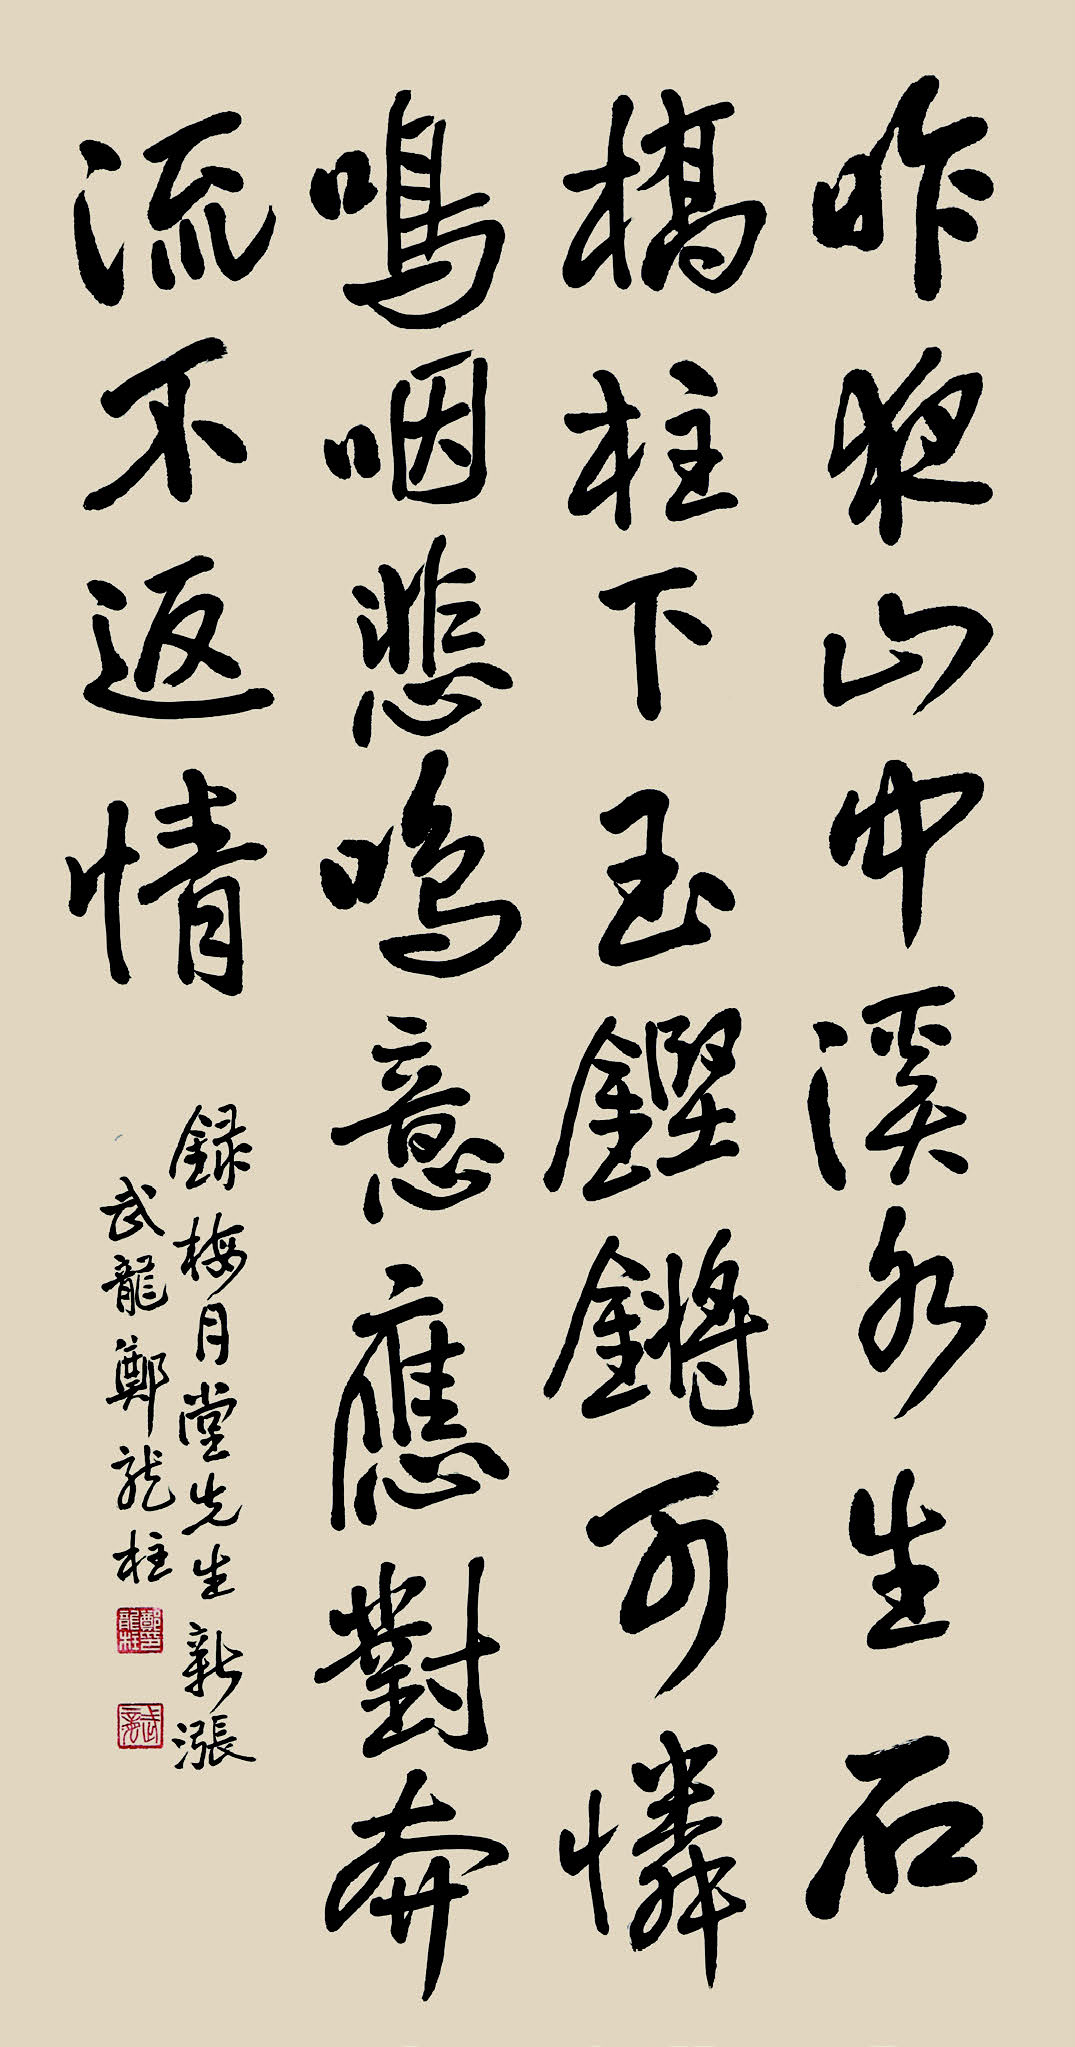 昨夜山中溪水生石
橋柱下玉鏗鏘可憐
嗚咽悲鳴意應對奔
流不返情
録梅月堂先生新漲
武龍鄭龍柱
鄭印龍柱